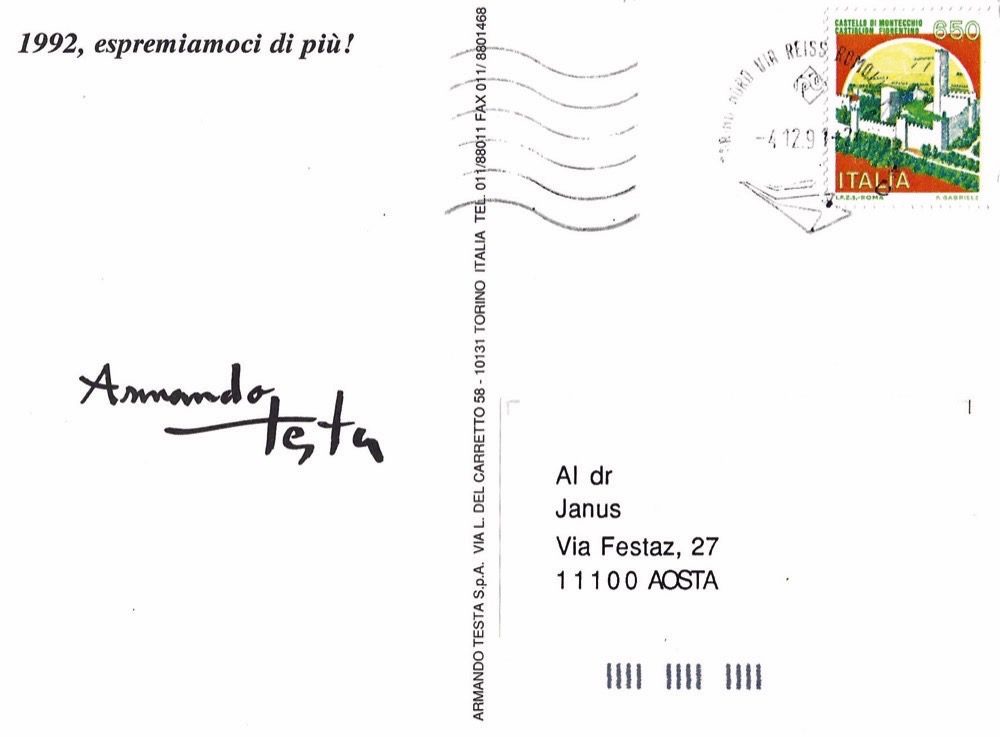 1992, espremiamoci di più!
Armando
Testa
ARMANDO TESTA S.p.A. VIA L. DEL CARRETTO 58 - 10131 TORINO ITALIA TEL. 011/88011 FAX 011/ 8801468
NORD VIA REISS ROMOLI
-4.12.91-
CASTELLO DI MONTECCHIO
CASTIGLION FIORENTINO
650
ITALIA
I.P.Z.S.-ROMA
Al dr
Janus
Via Festaz, 27
11100 AOSTA